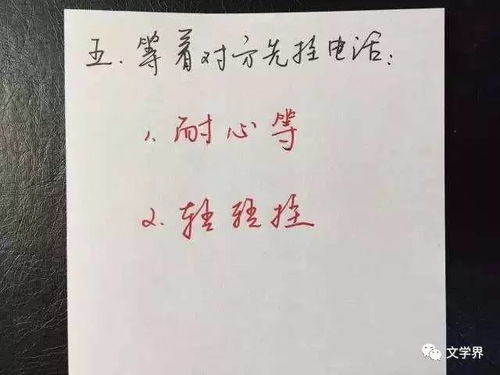 五.等着对方先挂电话：
1.耐心等
2.轻轻挂
文学界